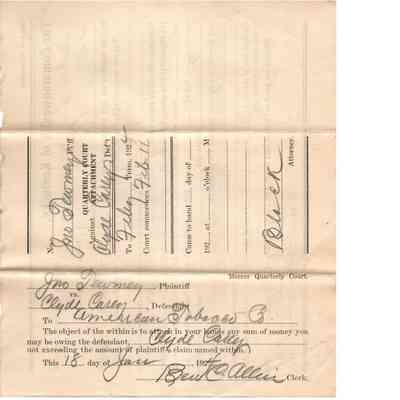 No.
Jno Dewmey Pl'ff
QUARTERLY COURT
ATTACHMENT
Against
Clyde Carey Def't
To Feby Term, 192
Court commences Feb 11
Came to hand day of
192 , at o'clock M
Buck
Attorney.
Mercer Quarterly Court.
Jno Dewmey, Plaintiff
vs.
Clyde Carey, Defendant
To American Tobacco
The object of the within is to attach in your hands any sum of money you
may be owing the defendant, Clyde Carey
not exceeding the amount of plaintiff's claim named within.
This 18 day of Jan 192
Ben C. Allin Clerk.